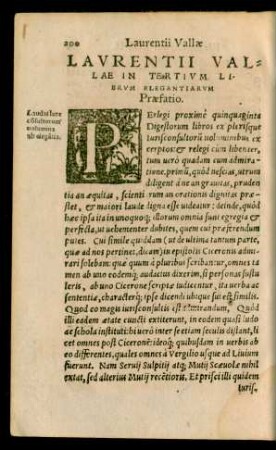 200 Laurentii Vallæ
LAVRENTII VAL-
LAE IN TERTIVM LI-
BRVM ELEGANTIARVM
Præfatio.
PErlegi proximè quinquaginta
Digestorum libros ex plerisque
iurisconsultorũ voluminibus ex
cerptos: & relegi cùm libenter,
tum uerò quadam cum admira-
tione. primũ, quòd nescias, utrum
diligentiáne an grauitas, pruden
tia an æquitas, scientia re-
rum an orationis dignitas præ-
stet, & maiori laude digna esse uideatur: deinde, quòd
hæc ipsa ita in unoquoq; illorum omnia sunt egregia &
perfecta, ut uehementer dubites, quem cui præferendum
putes. Cui simile quiddam (ut de ultima tantum parte,
quæ ad nos pertinet, dicam) in epistolis Ciceronis admi-
rari solebam: quæ quum à pluribus scribantur, omnes ta
men ab uno eodemq; audactus dixerim, si personas sustu
leris, ab uno Cicerone scriptæ iudicentur, ita uerba ac
sententiæ, characterq; ipse dicendi ubique sui est similis.
Quod eo magis iurisconsultis est admirandum, Quòd
illi eadem ætate cuncti extiterunt, in eodem quasi ludo
ac schola instituti: hi uerò inter se etiam seculis distant, li
cet omnes post Ciceronẽ: ideoq; quibusdam in uerbis ab
eo differentes, quales omnes à Vergilio usque ad Liuium
fuerunt. Nam Seruij Sulpitij atq; Mutij Scæuolæ nihil
extat, sed alterius Mutij recẽtioris. Et prisci illi quidem
iuris-